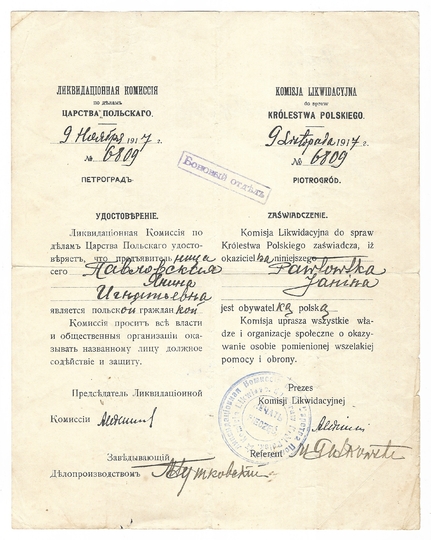 ЛИКВИДАЦІОННАЯ КОМИССІЯ
по дѣламъ
ЦАРСТВА ПОЛЬСКАГО.
9 Ноября 1917 г.
№ 6809
ПЕТРОГРАДЪ.
УДОСТОВѢРЕНІЕ.
Ликвидаціонная Комиссія по
дѣламъ Царства Польскаго удосто-
вѣряетъ, что предъявительница
сего Павловская
Янина
Игнатьевна
является польской гражданкой
Комиссія проситъ всѣ власти
и общественныя организаціи ока-
зывать названному лицу должное
содѣйствіе и защиту.
Предсѣдатель Ликвидаціонной
Комиссіи
Завѣдывающій
Дѣлопроизводствомъ
KOMISJA LIKWIDACYJNA
do spraw
KRÓLESTWA POLSKIEGO.
9 Listopada 1917 г.
№ 6809
PIOTROGRÓD.
ZAŚWIADCZENIE.
Komisja Likwidacyjna do spraw
Królestwa Polskiego zaświadcza, iż
okazicielka niniejszego
Pawłowska
Janina
jest obywatelką polską
Komisja uprasza wszystkie wła-
dze i organizacje społeczne o okazy-
wanie osobie pomienionej wszelakiej
pomocy i obrony.
Prezes
Komisji Likwidacyjnej
Referent
Боновый отдѣлъ